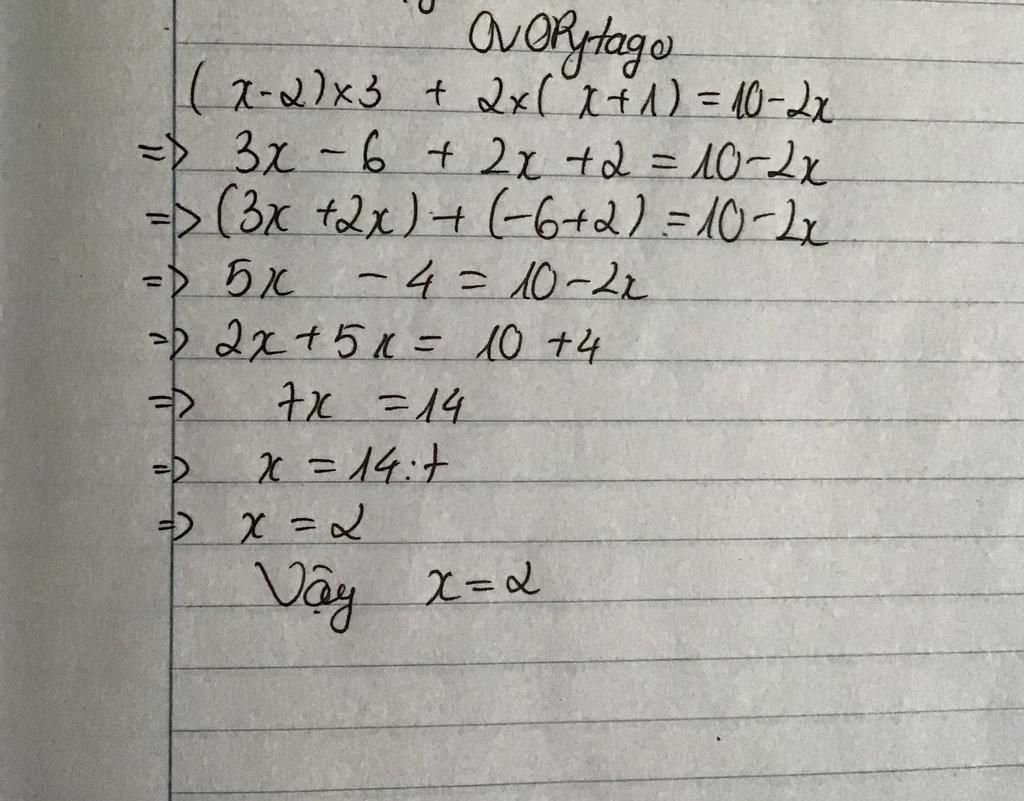 OVOPytago
(x-2)×3 + 2×(x+1)=10-2x
=> 3x - 6 + 2x +2 = 10-2x
=> (3x +2x) + (-6+2) = 10-2x
=> 5x - 4 = 10-2x
=> 2x+5x = 10 +4
=> 7x = 14
=> x = 14:7
=> x = 2
Vậy x=2